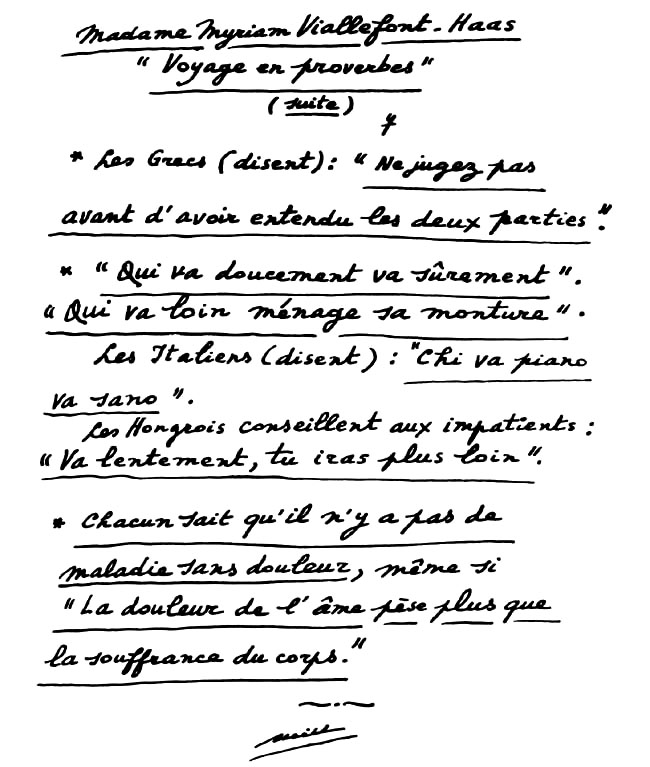 Madame Myriam Viallefont-Haas
"Voyage en proverbes"
(suite)
* Les Grecs (disent): "Ne jugez pas
avant d'avoir entendu les deux parties".
* "Qui va doucement va sûrement".
"Qui va loin ménage sa monture".
Les Italiens (disent) : "Chi va piano
va sano".
Les Hongrois conseillent aux impatients :
"Va lentement, tu iras plus loin".
* Chacun sait qu'il n'y a pas de
maladie sans douleur, même si
"La douleur de l'âme pèse plus que
la souffrance du corps."